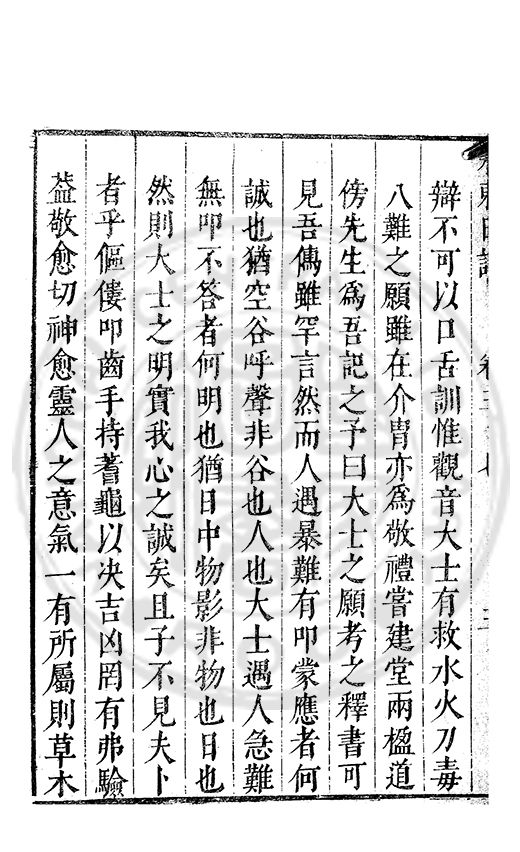 辯不可以口舌訓惟觀音大士有救水火刀毒
八難之願雖在介胄亦為敬禮嘗建堂兩楹道
傍先生爲吾記之予曰大士之願考之釋書可
見吾儁雖罕言然而人遇暴難有叩蒙應者何
誠也猶空谷呼聲非谷也人也大士遇人急難
無叩不答者何明也猶日中物影非物也日也
然則大士之明實我心之誠矣且子不見夫卜
者乎傴僂叩齒手持蓍龜以决吉凶罔有弗驗
葢敬愈切神愈靈人之意氣一有所屬則草木